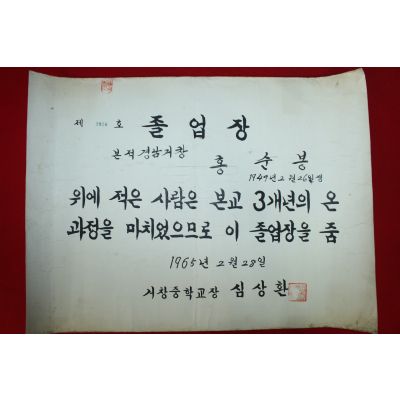 제 호 졸업장
본적 경남거창
홍순봉
1949년 2월 26일생
위에 적은 사람은 본교 3개년의 온
과정을 마치었으므로 이 졸업장을 줌
1965년 2월 28일
거창중학교장 심상환